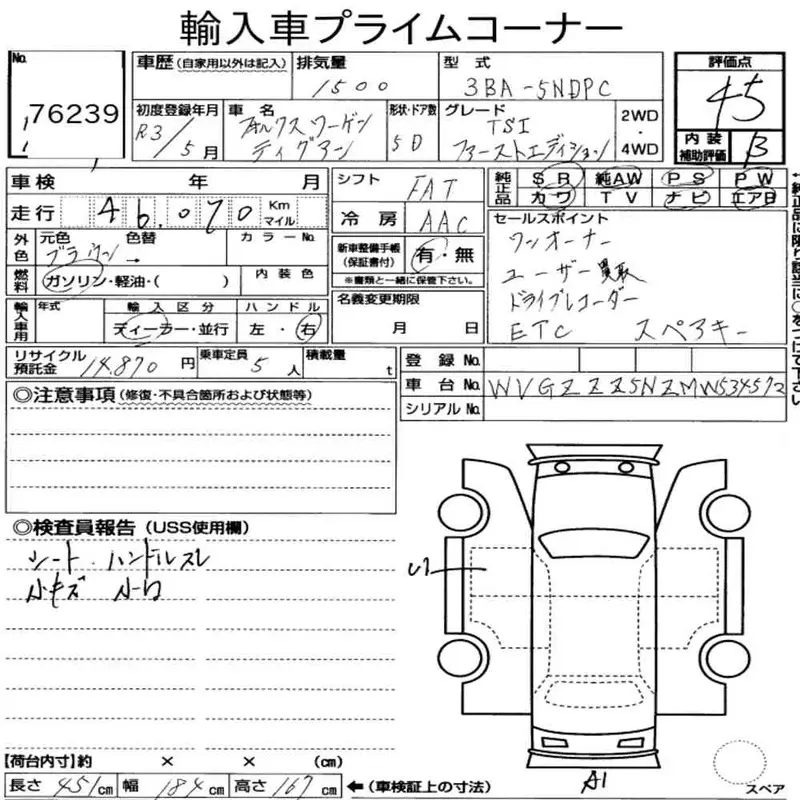 輸入車プライムコーナー
No. 76239
車歴 (自家用以外は記入)
排気量 1500
型式 3BA-5NDPC
評価点 45
内装補助評価 B
初度登録年月 R3/5月
車名 フォルクスワーゲン ティグアン
形状・ドア数 5D
グレード TSI ファーストエディション
2WD・4WD
車検 年 月
走行 46,070 Km マイル
シフト FAT
冷房 AAC
純正品 SR 純AW PS PW
カワ TV ナビ エアB
外色 元色 ブラウン 色替 → カラーNo.
燃料 ガソリン・軽油・( ) 内装色
新車整備手帳(保証書付) 有・無
※書類と一緒に保管下さい。
セールスポイント
ワンオーナー
ユーザー買取
ドライブレコーダー
ETC スペアキー
輸入車用 年式 輸入区分 ディーラー・並行 ハンドル 左・右
名義変更期限 月 日
リサイクル預託金 14,870円 乗車定員 5人 積載量 t
登録No.
車台No. WVGZZZ5NZMW534572
シリアルNo.
◎注意事項 (修復・不具合箇所および状態等)
◎検査員報告 (USS使用欄)
シート・ハンドルスレ
小キズ 小凹
U1
A1
スペア
【荷台内寸】約 × × (cm)
長さ 451cm 幅 184cm 高さ 167cm ←(車検証上の寸法)